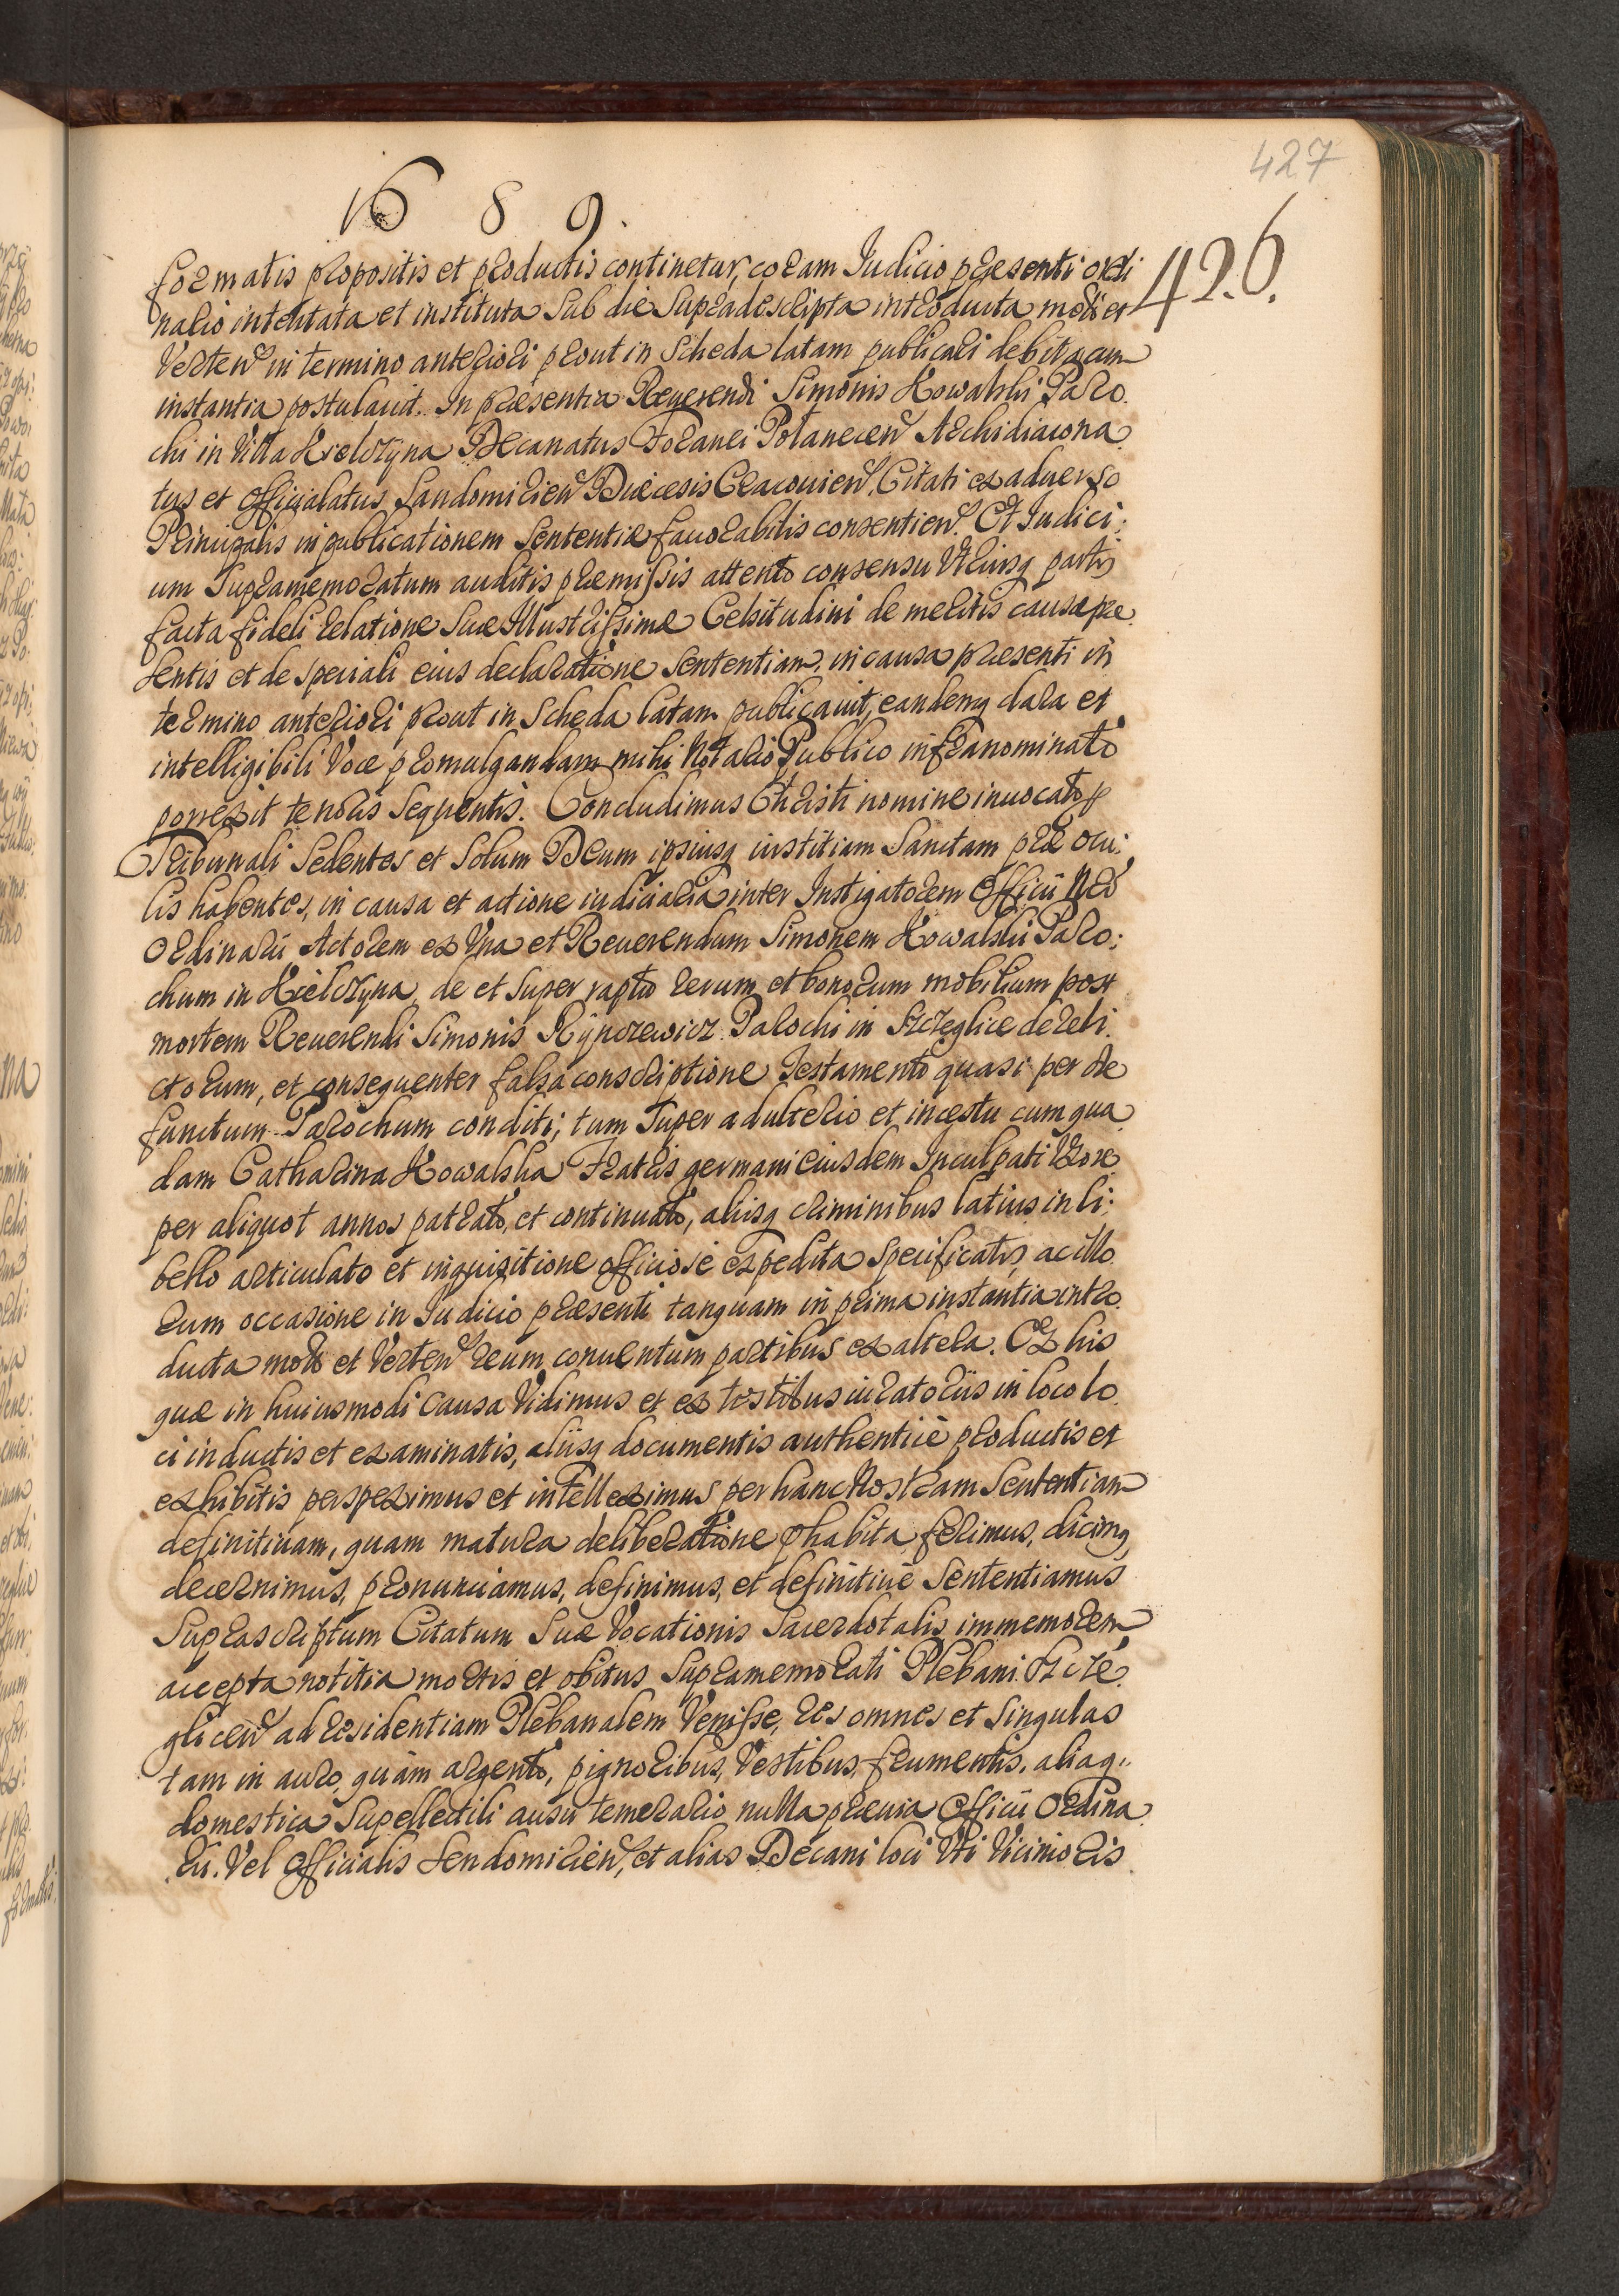 427
1689.
426.
formatis propositis et productis continetur, coram Iudicio praesenti ordi
nario intentata et instituta sub die supradescripta introducta mõti et
Verteñ in termino anteriori prout in Scheda latam publicari debita cum
instantia postulavit. In praesentia Reverendi Simonis Kowalski Paro.
chi in Villa Kielczyna Decanatus Foranei Polaneceñ Archidiacona
tus et Officialatus Sandomirieñ Diæcesis Cracovieñ, Citati ex adverso
Principalis in publicationem Sententiæ favorabilis consentieñ. Et Iudici:
um Supramemoratum auditis præmissis attento consensu Utriusq partis
facta fideli relatione Suæ Illustrissimæ Celsitudini de meritis causæ præ
sentis et de speciali eius declaratione sententiam in causa præsenti in
termino anteriori prout in Scheda latam publicavit, eandemq clara et
intelligibili Voce promulgandam mihi Notario Publico infranominato
porrexit tenoris sequentis. Concludimus Christi nomine invocato p
Tribunali Sedentes et Solum Deum ipsiusq iustitiam Sanctam præ ocu:
lis habentes, in causa et actione iudiciaria inter Instigatorem Officii Nrõ
Ordinarii Actorem ex Una et Reverendum Simonem Kowalski Paro:
chum in Kielczyna, de et super raptu rerum et bonorum mobilium post
mortem Reverendi Simonis Rynczewicz Parochi in Szczeglice dereli
ctorum, et consequenter falsa conscriptione Testamento quasi per de
functum Parochum conditi; tum super adulterio et incestu cum qua
dam Catharina Kowalska Fratris germani eiusdem Inculpati Uxore
per aliquot annos patrato, et continuato, aliisq criminibus latius in li:
bello articulato et inquisitione officiosè expedita specificatis, ac illo
rum occasione in Iudicio præsenti tanquam in prima instantia intro
ducta motis et Verteñ reum conventum partibus ex altera. Ex his
quæ in huiusmodi Causa Vidimus et ex testibus iuratoriis in loco lo
ci inductis et examinatis, aliisq documentis authenticè productis et
exhibitis perspeximus et intelleximus per hanc Nostram Sententiam
definitivam, quam matura deliberatione phabita ferimus, dicimq,
decernimus, pronunciamus, definimus, et definitivè Sententiamus
Suprascriptum Citatum Suæ Vocationis Sacerdotalis immemorem
accepta notitia mortis et obitus Supramemorati Plebani Szcze
gliceñ ad residentiam Plebanalem Venisse, res omnes et singulas
tam in auro, quàm argento, pignoribus, Vestibus, frumentis, aliaq
domestica Supellectili ausu temerario nulla prævia Officii Ordina
rii. Vel Officialis Sendomirieñ, et alias Decani loci Uti Vicinioris